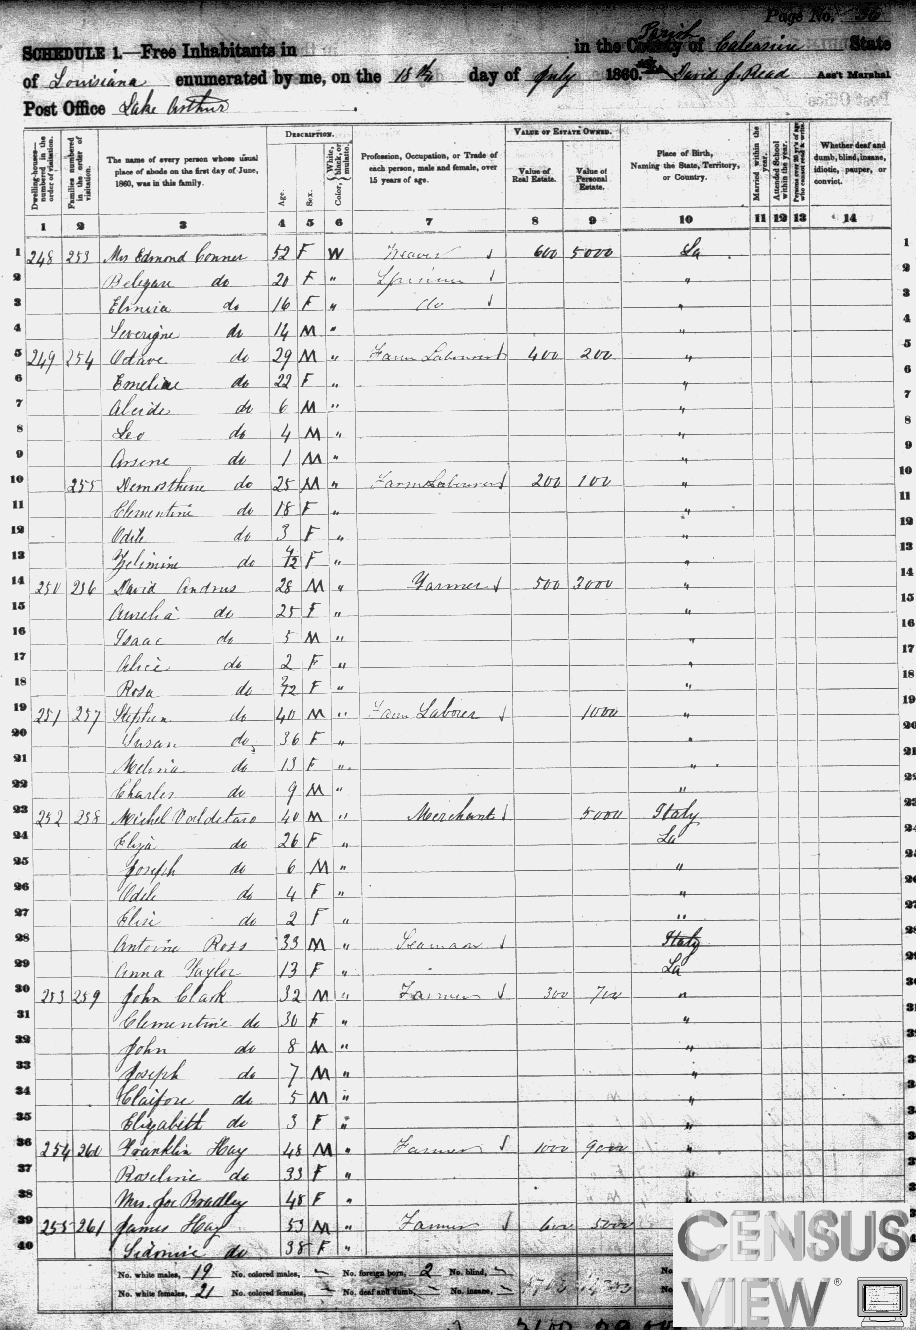 Page No. 36
SCHEDULE 1.—Free Inhabitants in in the County of Parish Calcasieu State
of Louisiana enumerated by me, on the 18th day of July 1860. David J. Read Ass't Marshal
Post Office Lake Arthur
Dwelling-houses numbered in the order of visitation. Families numbered in the order of visitation. The name of every person whose usual place of abode on the first day of June, 1860, was in this family. DESCRIPTION. Age. Sex. Color, White, black, or mulatto. Profession, Occupation, or Trade of each person, male and female, over 15 years of age. VALUE OF ESTATE OWNED. Value of Real Estate. Value of Personal Estate. Place of Birth, Naming the State, Territory, or Country. Married within the year. Attended School within the year. Persons over 20 y'rs of age who cannot read & write. Whether deaf and dumb, blind, insane, idiotic, pauper, or convict.
1 2 3 4 5 6 7 8 9 10 11 12 13 14
1 248 253 Mrs Edmond Conner 52 F W Weaver 600 5000 La 1
2 do 20 F " Spinner " 2
3 Elmira do 16 F " do " 3
4 Severigne do 14 M " " 4
5 249 254 Octave do 29 M " Farm Labourer 400 200 " 5
6 Emeline do 22 F " " 6
7 Alcide do 6 M " " 7
8 Leo do 4 M " " 8
9 Arsene do 1 M " " 9
10 255 Demosthene do 25 M " Farm Labourer 200 100 " 10
11 Clementine do 18 F " " 11
12 Odile do 3 F " " 12
13 Zelimine do 4/12 F " " 13
14 250 256 David Andrus 28 M " Farmer 500 2000 " 14
15 Aurelia do 25 F " " 15
16 Isaac do 5 M " " 16
17 Alice do 2 F " " 17
18 Rosa do 2/12 F " " 18
19 251 257 Stephen do 40 M " Farm Laborer 1000 " 19
20 Susan do 36 F " " 20
21 Melina do 13 F " " 21
22 Charles do 9 M " " 22
23 252 258 Michel Valdetaro 40 M " Merchant 5000 Italy 23
24 Eliza do 26 F " La 24
25 Joseph do 6 M " " 25
26 Odile do 4 F " " 26
27 Elise do 2 F " " 27
28 Antoine Ross 33 M " Seaman Italy 28
29 Anna Taylor 13 F " La 29
30 253 259 John Clark 32 M " Farmer 300 700 " 30
31 Clementine do 30 F " " 31
32 John do 8 M " " 32
33 Joseph do 7 M " " 33
34 Claifore do 5 M " " 34
35 Elizabeth do 3 F " " 35
36 254 260 Franklin Hay 48 M " Farmer 1000 9000 " 36
37 Roseline do 33 F " " 37
38 Mrs. Joe Bradley 48 F " 38
39 255 261 James Hay 53 M " Farmer 600 5000 39
40 Sidonie do 38 F " 40
No. white males, 19 No. colored males, No. foreign born, 2 No. blind,
No. white females, 21 No. colored females, No. deaf and dumb, No. insane,
CENSUS
VIEW®